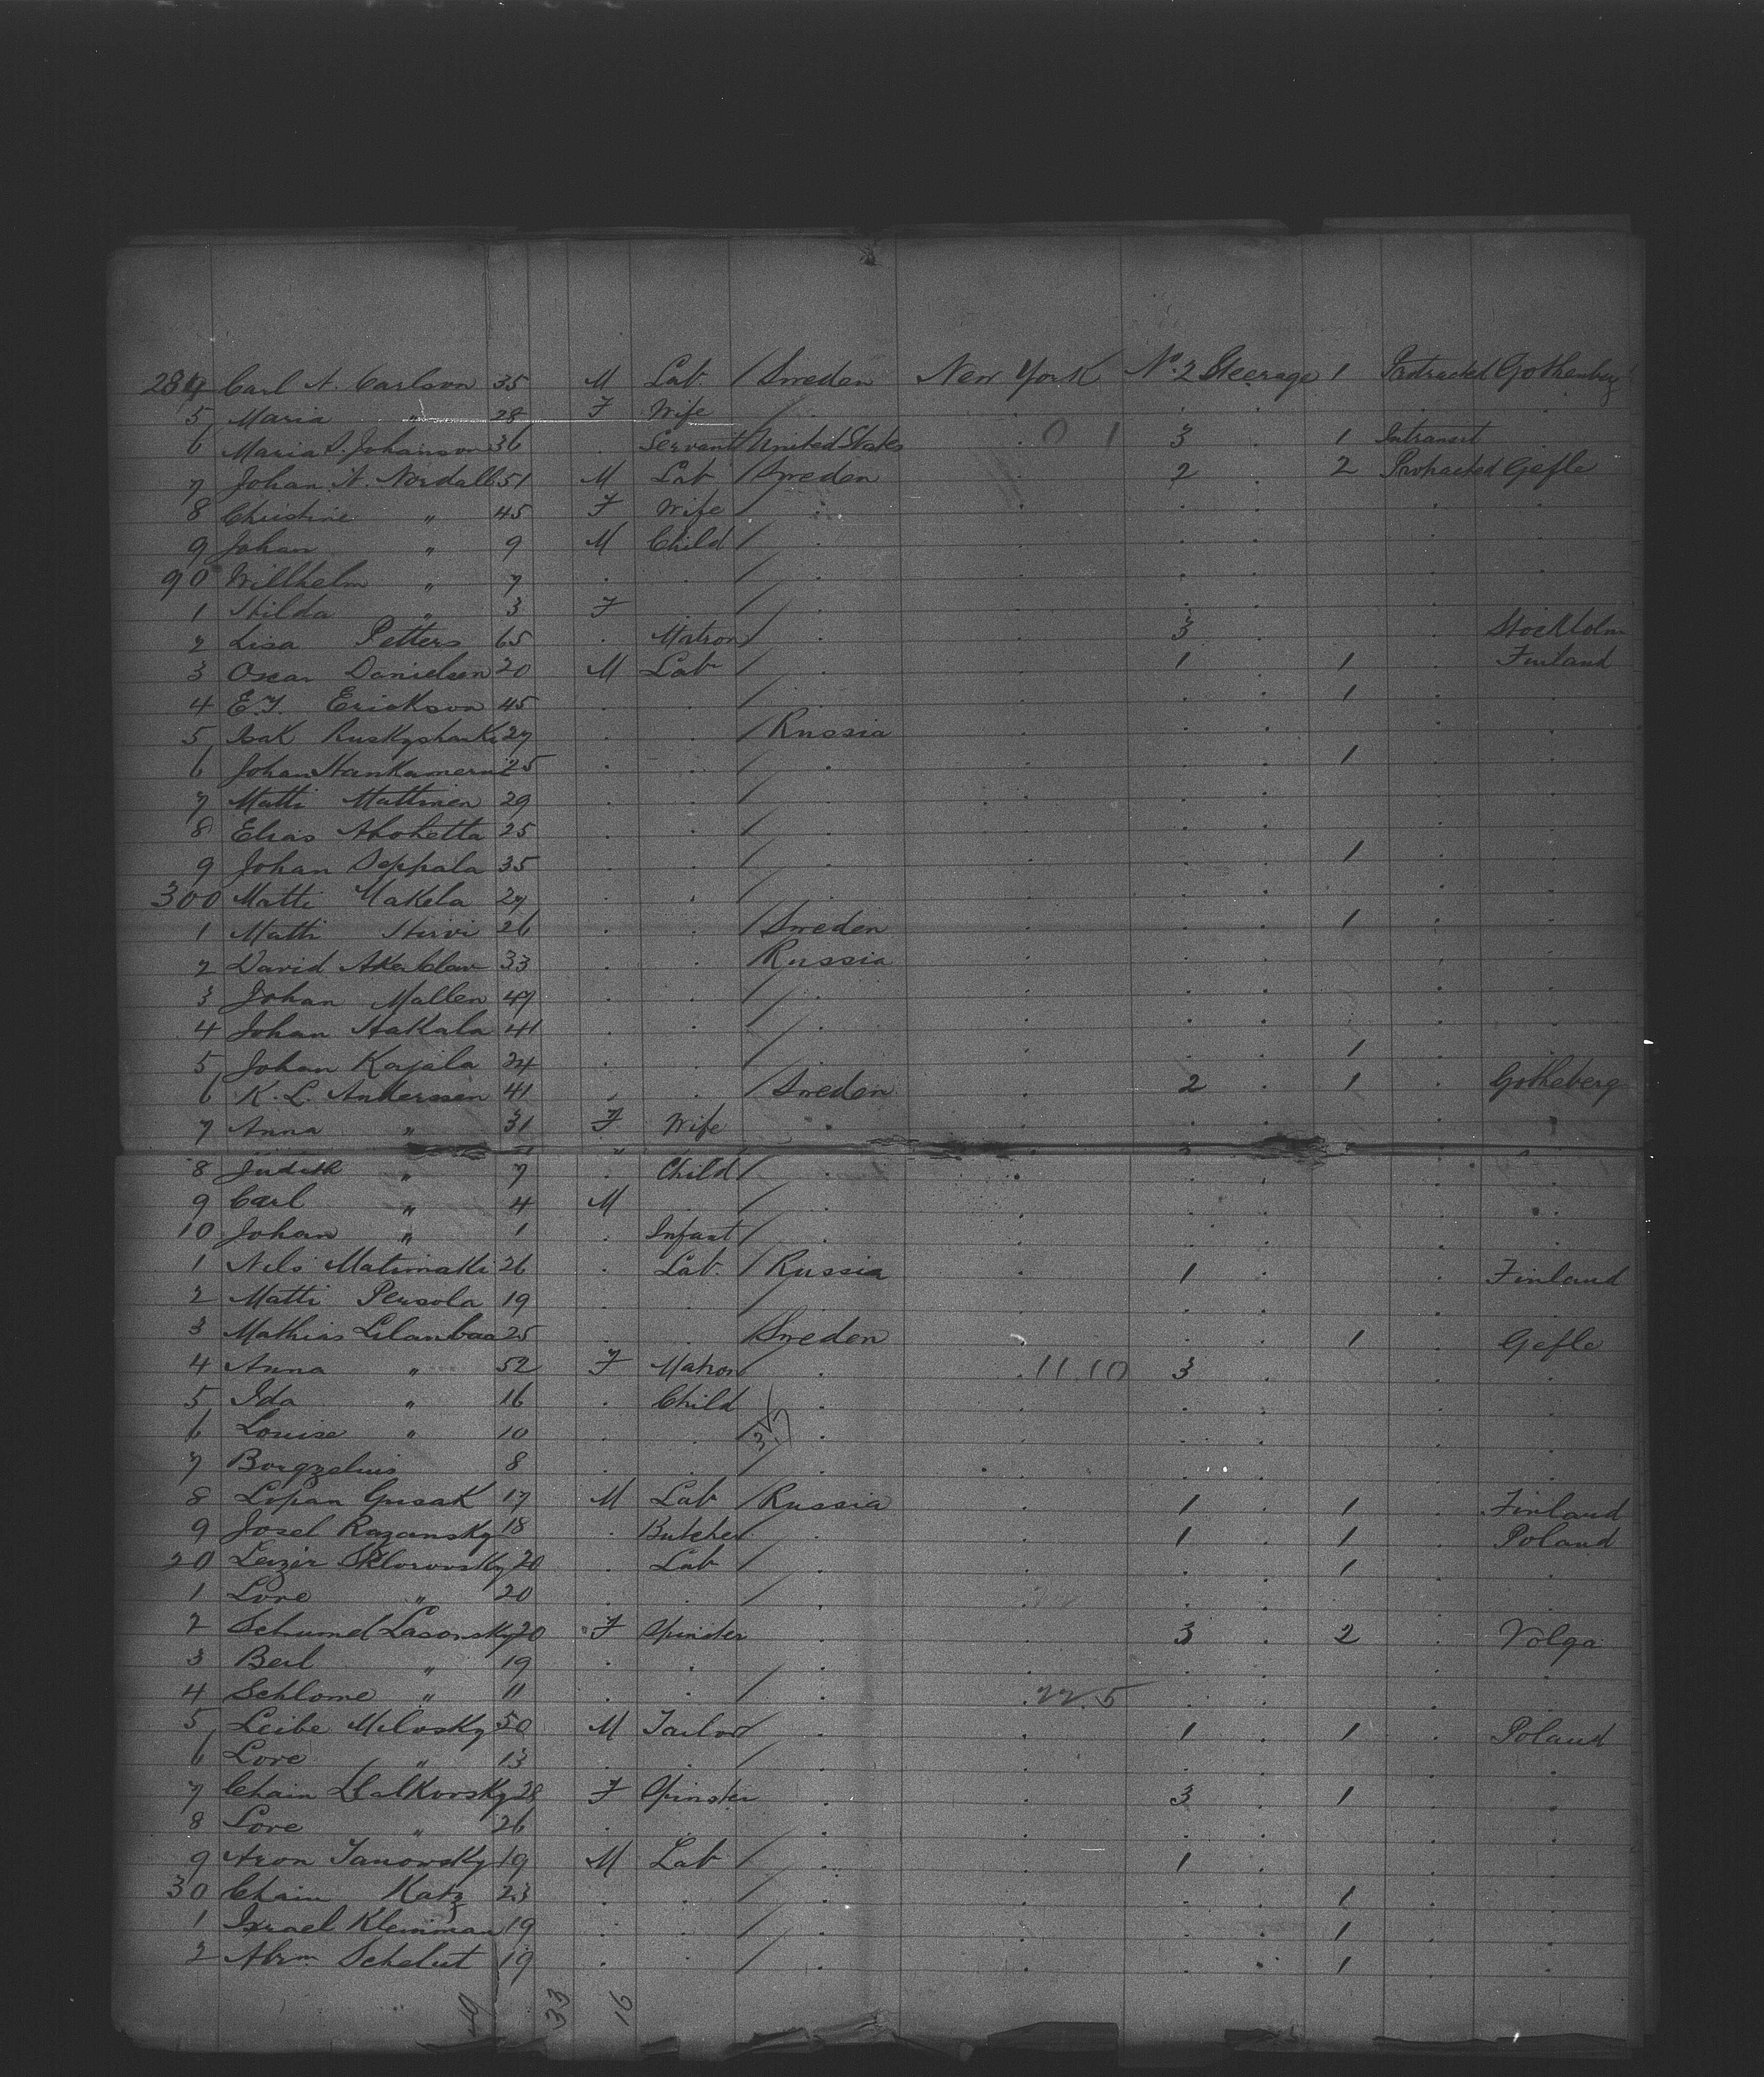 284 Carl A. Carlson 35 M Lab. / Sweden New York No. 2 Steerage 1 Protracted Gothenburg
5 Maria " 28 F Wife / . . . . .
6 Maria S. Johanson 36 . Servant United States . 0 1 3 . 1 Intransit .
7 Johan N. Nordall 51 M Lab / Sweden . 2 . 2 Protracted Gefle
8 Christine " 45 F Wife / . . . . . .
9 Johan " 9 M Child / . . . . . .
90 Willhelm " 7 . / . . . . . .
1 Hilda " 3 F / . . . . .
2 Lisa Petters 65 . Matron / . . 3 . . Stockholm
3 Oscar Danielson 20 M Lab / . . 1 . 1 . Finland
4 E.J. Erickson 45 . . / . . . . 1 . .
5 Isak 27 . . / Russia . . . . .
6 Johan 25 . . / . . . . 1 . .
7 Matti Mattinen 29 . . / . . . . . .
8 Elias 25 . . / . . . . . .
9 Johan Seppala 35 . . / . . . . 1 . .
300 Matti Makela 27 . . / . . . . . .
1 Matti Hirvi 26 . . / Sweden . . . 1 . .
2 David 33 . . Russia . . . . .
3 Johan Mallen 47 . . / . . . . . .
4 Johan Hakala 41 . . / . . . . . .
5 Johan Kajala 24 . . / . . . . 1 . .
6 K. L. Anderssen 41 . . / Sweden . 2 . 1 . Gotheberg
7 Anna " 31 F Wife . . . . . .
8 Judith " 7 . Child / . . . . . .
9 Carl " 4 M / . . . . . .
10 Johan " 1 . Infant / . . . . . .
1 Nils Matimakki 26 . Lab. / Russia . 1 . . Finland
2 Matti Persola 19 . . / . . . . . .
3 Mathias 25 . . / Sweden . . . 1 . Gefle
4 Anna " 52 F Matron . . 11 10 3 . . .
5 Ida " 16 . Child . . . . . .
6 Louise " 10 . . / . . . . . .
7 8 . . / . . . . . .
8 Lipan Gusak 17 M Lab / Russia . 1 . 1 . Finland
9 Josel Razansky 18 . Butcher . . 1 . 1 . Poland
20 Leizer Sklorovsky 20 . Lab / . . . . 1 . .
1 Lore " 20 . . / . . . . . .
2 Schumel Lasonsky 20 F Spinster . . 3 . 2 . Volga
3 Berl " 19 . . / . . . . . .
4 Schlome " 11 . . / . . 22 5 . . . .
5 Leibe Milosky 50 M Tailor / . . 1 . 1 . Poland
6 Lore " 13 . . / . . . . . .
7 Chain 28 F Spinster . . 3 . 1 . .
8 Lore " 26 . . / . . . . . .
9 Aron Janowsky 19 M Lab / . . 1 . . .
30 Chain Katz 23 . . / . . . . 1 . .
1 Israel Kleinman 19 . . / . . . . 1 . .
2 Abrm Schelut 19 . . / . . . . 1 . .
33 16